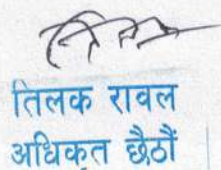 तिलक रावल
अधिकृत छैठौं